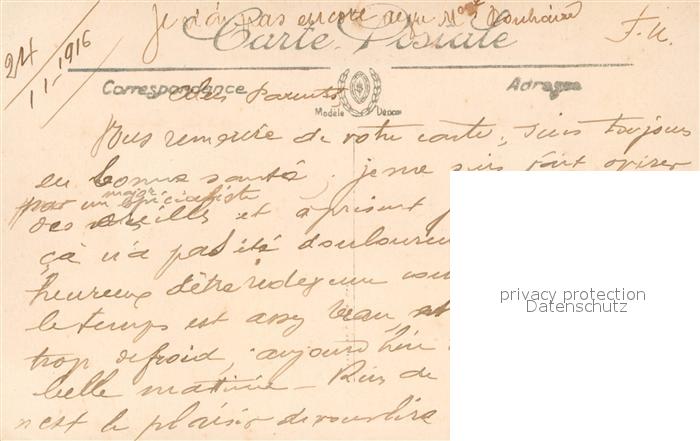 Je n'ai pas encore reçu
F. M.
Carte Postale
24/11-1916
Correspondance Adresse
Mes Parents
Modèle Déposé
Vous remercie de votre carte, suis toujours
en bonne santé. je me suis fait
par un major spécialiste
des oreilles et à présent
çà n'a pas été douloureux
heureux d'être
le temps est assez beau
trop de froid, aujourd'hui
belle matinée - Rien de
n'est le plaisir de vous lire
privacy protection
Datenschutz